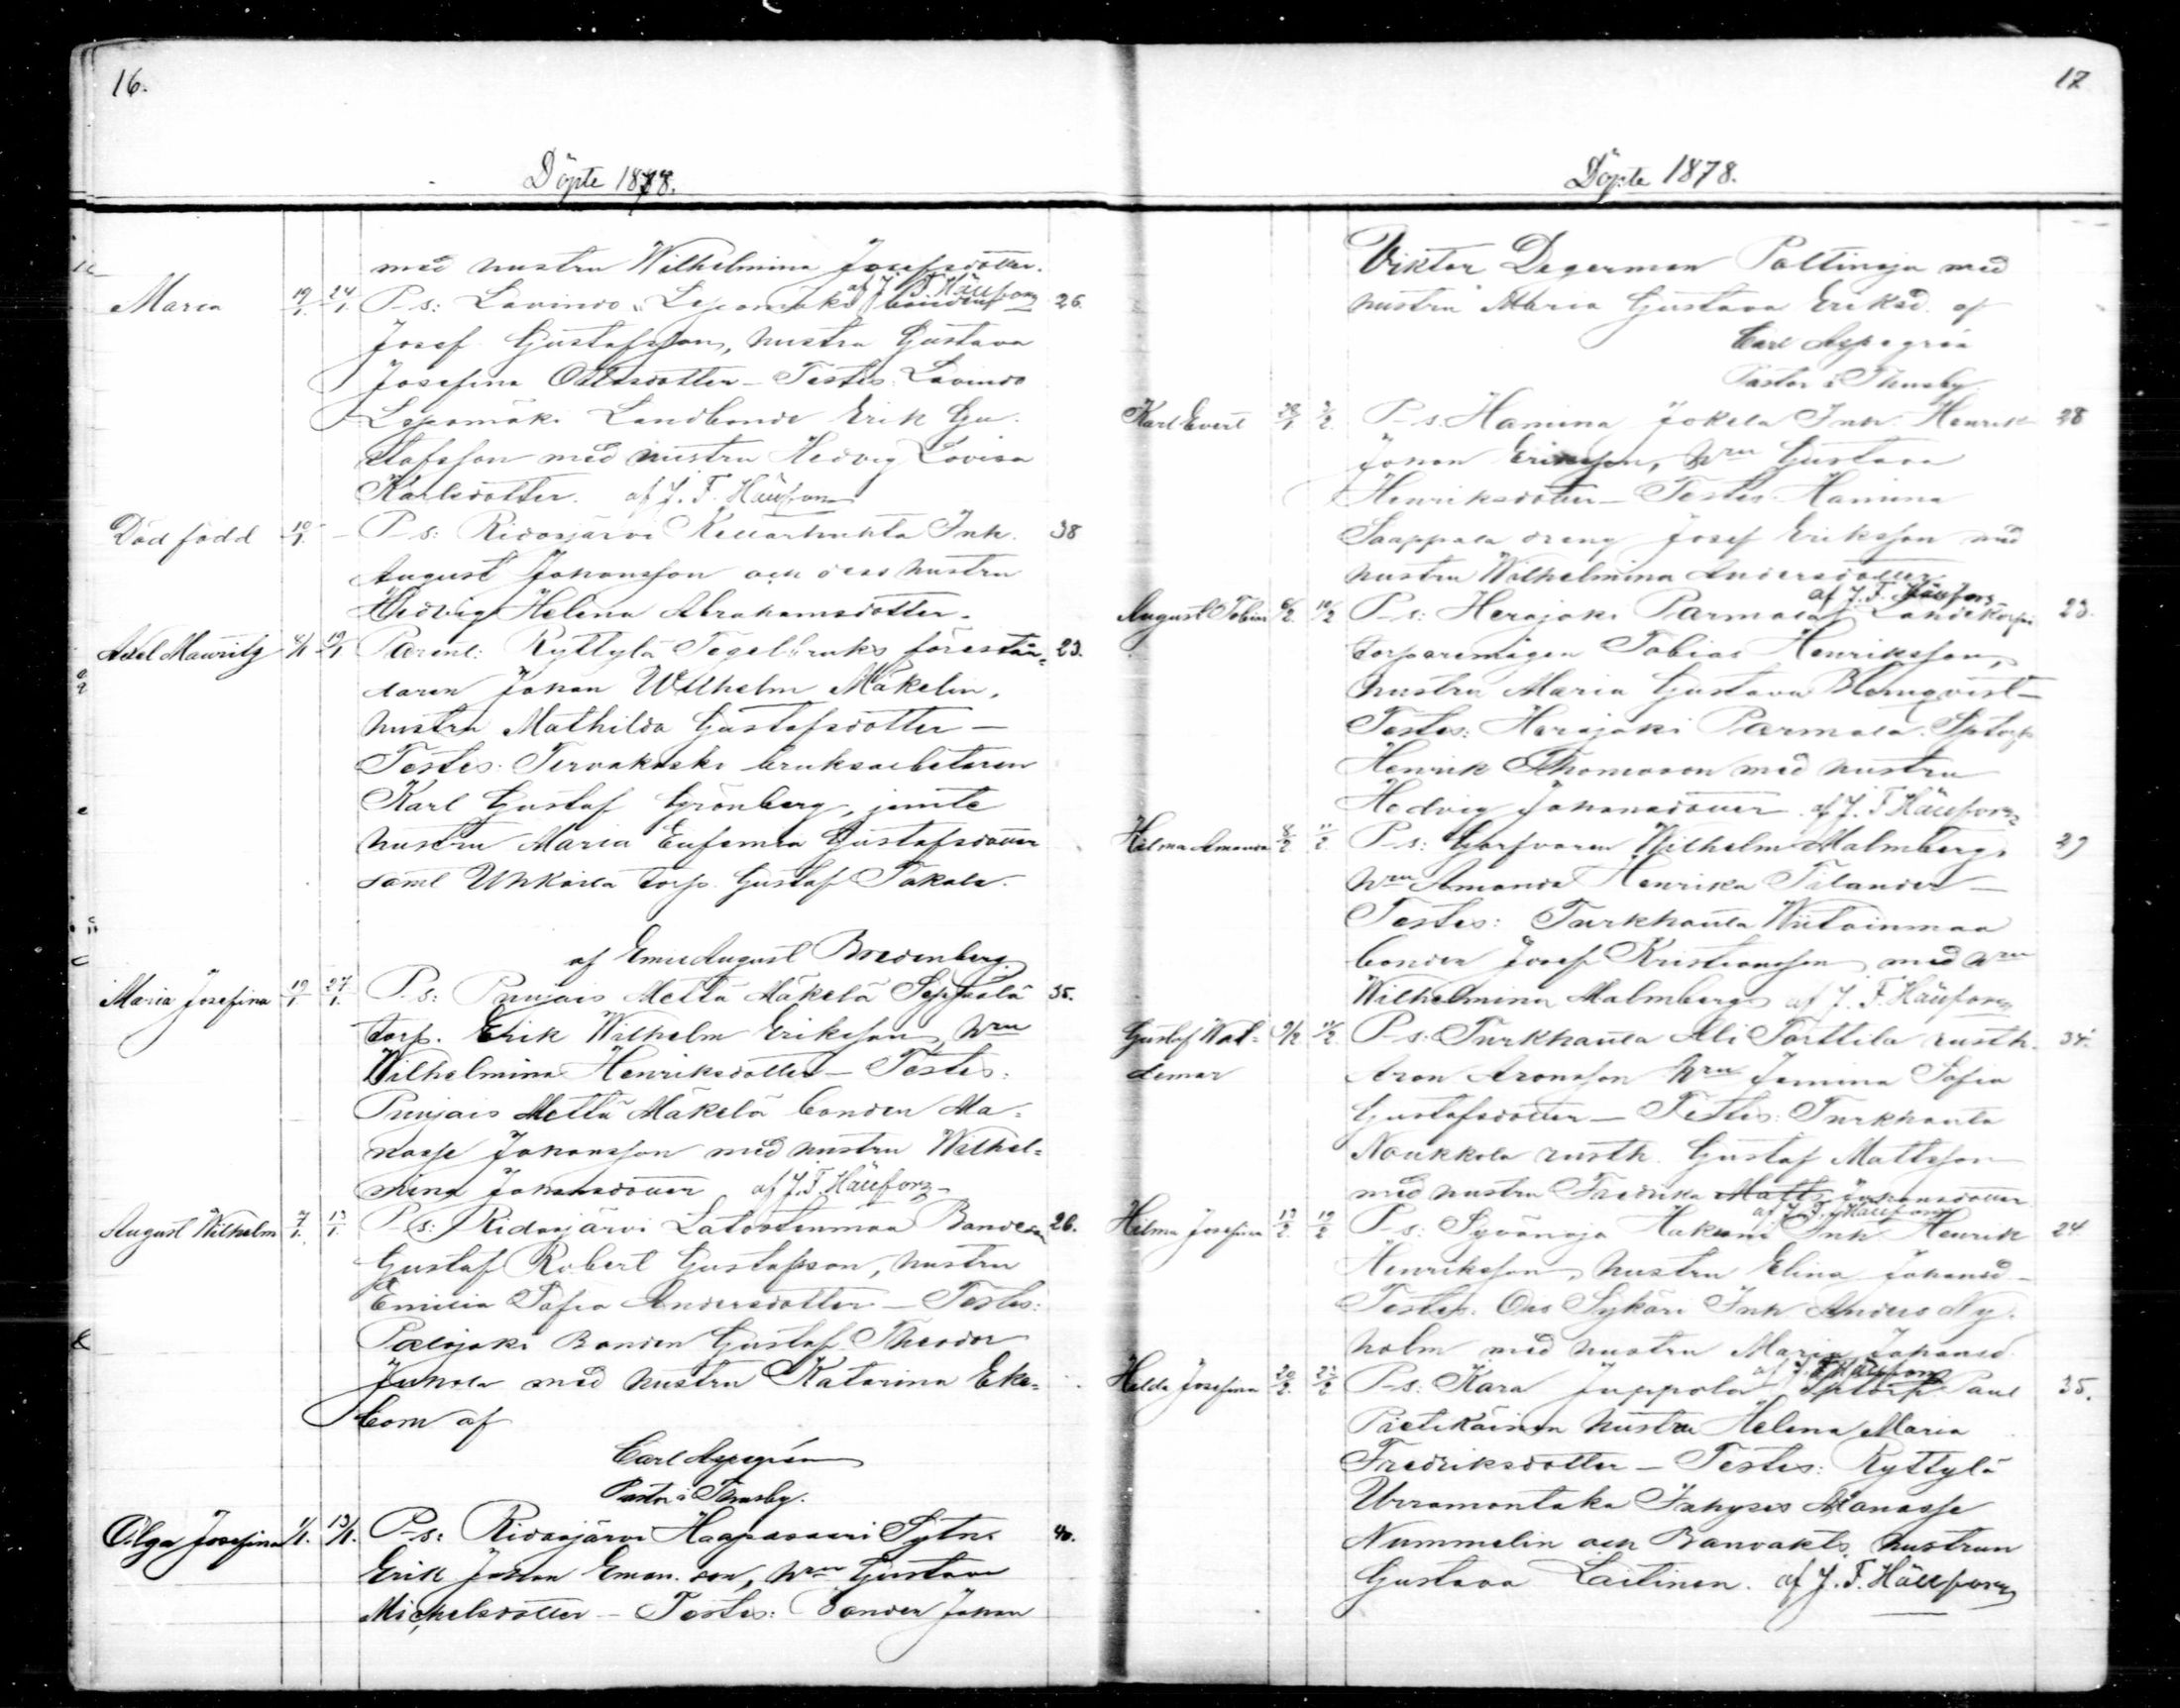 16.
Döpte 1878.
med hustru Wilhelmina Josefsdotter.
af J. F. Hällfors
Maria 19/1 24/1 P-s: Lavinto Lepomäki bonden 26.
Josef Gustafsson, hustru Gustava
Josefina Ottosdotter - Testes: Lavinto
Lepomäki Landbonde Erik Gu-
stafsson med hustru Hedvig Lovisa
Karlsdotter. af J. F. Hällfors
Död född 10/1 - P-s: Ridasjärvi Inh. 38
August Johansson och dess hustru
Hedvig Helena Abrahamsdotter.
Axel Mauritz 4/1 19/1 Parent: Ryttylä Tegelbruks förestån- 23.
daren Johan Wilhelm Mäkelin,
hustru Mathilda Gustafsdotter -
Testes: Tervakoski bruksarbetaren
Karl Gustaf Grönberg, jemte
hustru Maria Eufemia Gustafsdotter
samt torp. Gustaf Takala.
af Emil August Bredenberg.
Maria Josefina 19/1 27/1. P-s: Punjais Mettä Mäkelä Seppälä 35.
torp. Erik Wilhelm Eriksson, hru
Wilhelmina Henriksdotter - Testes:
Punjais Mettä Mäkelä bonden Ma-
nasse Johansson med hustru Wilhel-
mina Johansdotter af J. F. Hällfors
August Wilhelm 7/1. 13/1. P-s: Ridasjärvi Latostenmaa Bonden 26.
Gustaf Robert Gustafsson, hustru
Emilia Sofia Andersdotter - Testes:
Palojoki Bonden Gustaf Theodor
Juhola med hustru Katarina Eke-
bom af
Carl Aspegrén
Pastor i Thusby.
Olga Josefina 1/1. 13/1. P-s: Ridasjärvi Haapasaari Sytn. 40.
Erik Johan Eman. son, hru Gustava
Michelsdotter - Testes: Bonden Johan
17
Döpte 1878.
Viktor Degerman Paltinoja med
hustru Maria Gustava Eriksd. af
Carl Aspegrén
Pastor i Thusby
Karl Evert P-s: Hamina Jokela Inh. Henrik 28
Johan Eriksson, hru Gustava
Henriksdotter - Testes: Hamina
Saappala dreng Josef Eriksson med
hustru Wilhelmina Andersdotter
af J. F. Hällfors
August Tobias 6/2. 10/2 P-s: Herajoki Parmala 23.
torparemågen Tobias Henriksson,
hustru Maria Gustava Blomqvist -
Testes: Herajoki Parmala Sptorp
Henrik Thomasson med hustru
Hedvig Johansdotter af J. F. Hällfors
Hilma Amanda 8/2 11/2 P-s: Garfvaren Wilhelm Malmberg, 29
hru Amanda Henrika Tilander -
Testes: Turkhauta Wiitainmaa
bonden Josef Kristiansson med hru
Wilhelmina Malmberg af J. F. Hällfors
Gustaf Wal- 9/2 11/2 P-s: Turkhauta Ali Torttila rusth. 34.
demar Aron Aronsson hru Jemina Sofia
Gustafsdotter - Testes: Turkhauta
Naukkola rusth. Gustaf Mattsson
med hustru Fredrika Matts Johansdotter
af J. F. Hällfors
Hilma Josefina 13/2. 19/2 P-s: Syvänoja Hakuni Inh. Henrik 24
Henriksson, hustru Elina Johansd -
Testes: Ons Sykäri Inh. Anders Ny-
holm med hustru Maria Johansd.
af J. F. Hällfors
Hilda Josefina 20/2. P-s: Kara Juppola Sptorp. Paul 35.
Pietikäinen hustru Helena Maria
Fredriksdotter - Testes: Ryttylä
Manasse
Nummelin och Banvakts hustrun
Gustava Laitinen. af J. F. Hällfors